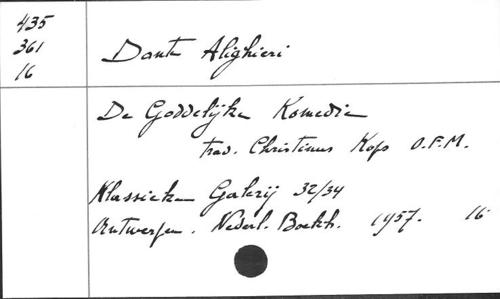 435
361
16
Dante Alighieri
De Goddelijke Komedie
trad. Christinus Kops O.F.M.
Klassieke Galerij 32/34
Antwerpen. Nederl. Boekh. 1957. 16